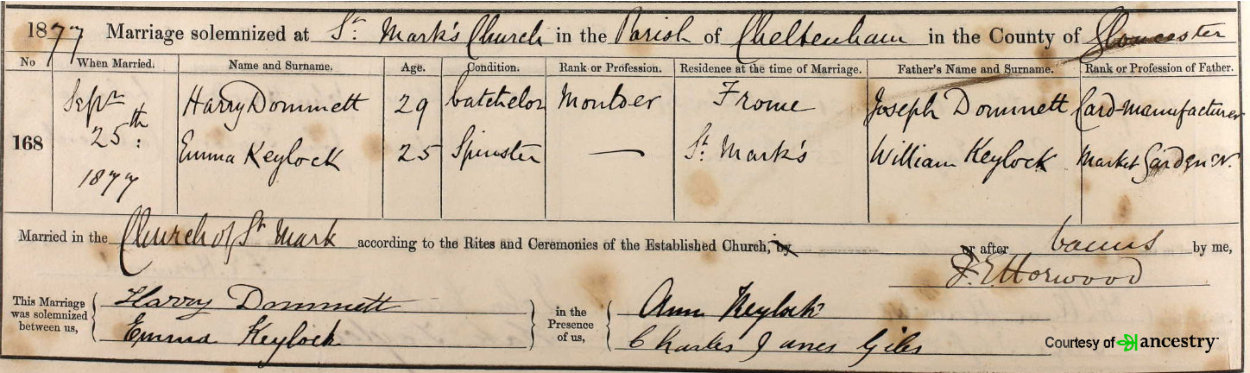 1877 Marriage solemnized at St. Mark's Church in the Parish of Cheltenham in the County of Gloucester
No When Married. Name and Surname. Age. Condition. Rank or Profession. Residence at the time of Marriage. Father's Name and Surname. Rank or Profession of Father.
Septr Harry Dommett 29 Batchelor Moulder Frome Joseph Dommett Card-manufacturer
168 25th: Emma Keylock 25 Spinster — St. Mark's William Keylock Market Gardener.
1877
Married in the Church of St Mark according to the Rites and Ceremonies of the Established Church, by or after banns by me,
Horwood
This Marriage was solemnized between us, Harry Dommett in the Presence of us, Ann Keylock
Emma Keylock Charles James Giles
Courtesy of ancestry